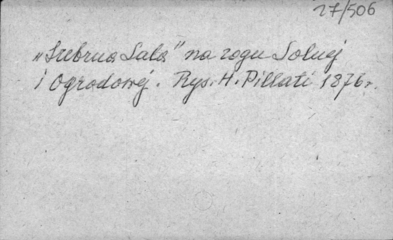 27/506
„Srebrna Sala" na rogu Solnej
i Ogrodowej. Rys. H. Pillati 1876 r.